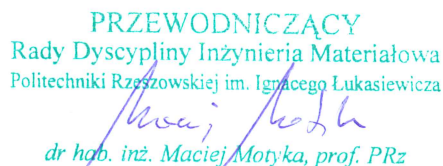 PRZEWODNICZĄCY
Rady Dyscypliny Inżynieria Materiałowa
Politechniki Rzeszowskiej im. Ignacego Łukasiewicza
Maciej Motyka
dr hab. inż. Maciej Motyka, prof. PRz